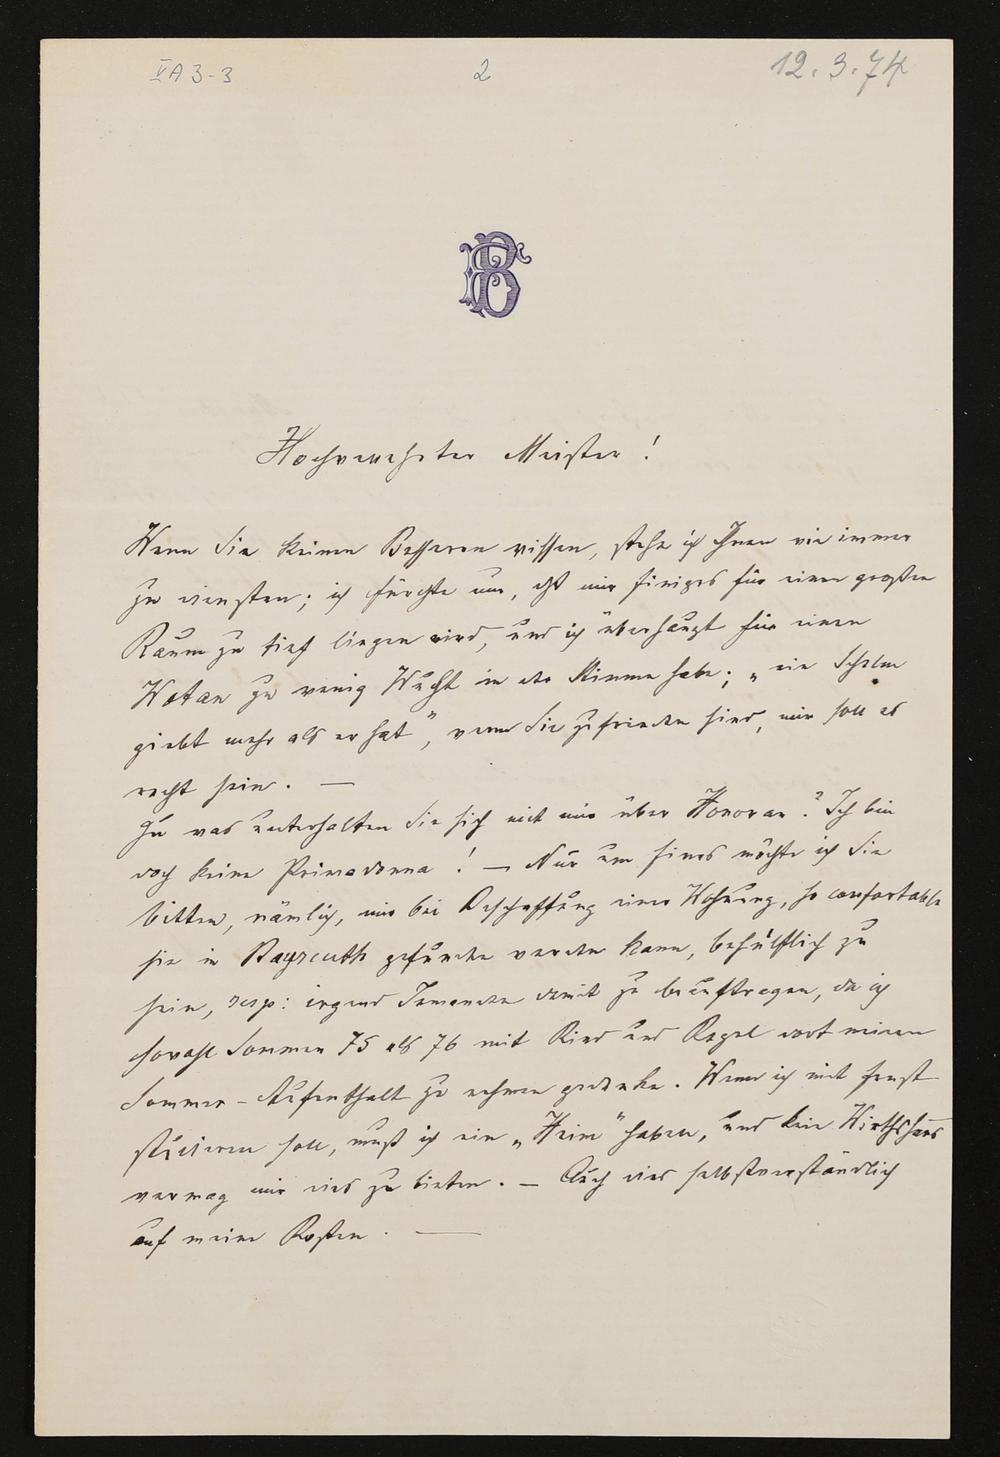 VA 3-3
2
12.3.74
FB
Hochverehrter Meister!
Wenn Sie keinen Besseren wissen, stehe ich Ihnen wie immer
zu diensten; ich fürchte nur, daß mir einiges für einen großen
Raum zu tief liegen wird, und ich überhaupt für einen
Wotan zu wenig Wucht in der Stimme habe; „ein Schelm
giebt mehr als er hat“, wenn Sie zufrieden sind, mir soll es
recht sein. —
Zu was unterhalten Sie sich mit mir über Honorar? Ich bin
doch keine Primadonna! — Nur um Eines möchte ich Sie
bitten, nämlich, mir bei Beschaffung einer Wohnung, so comfortable
sie in Bayreuth gefunden werden kann, behülflich zu
sein, resp: irgend Jemanden damit zu beauftragen, da ich
sowohl Sommer 75 als 76 mit Kind und Kegel dort meinen
Sommer-Aufenthalt zu nehmen gedenke. Wenn ich mit Ernst
studieren soll, muß ich ein „Heim“ haben, und kein Wirthshaus
vermag mir dies zu bieten. — Auch dies selbstverständlich
auf meine Kosten. —